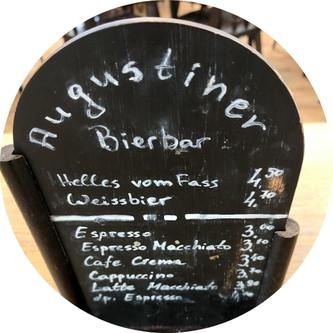 Augustiner
Bierbar
Helles vom Fass 4,50
Weissbier 4,70
Espresso
Espresso Macchiato
Cafe Crema
Cappuccino
Latte Macchiato
dp. Espresso